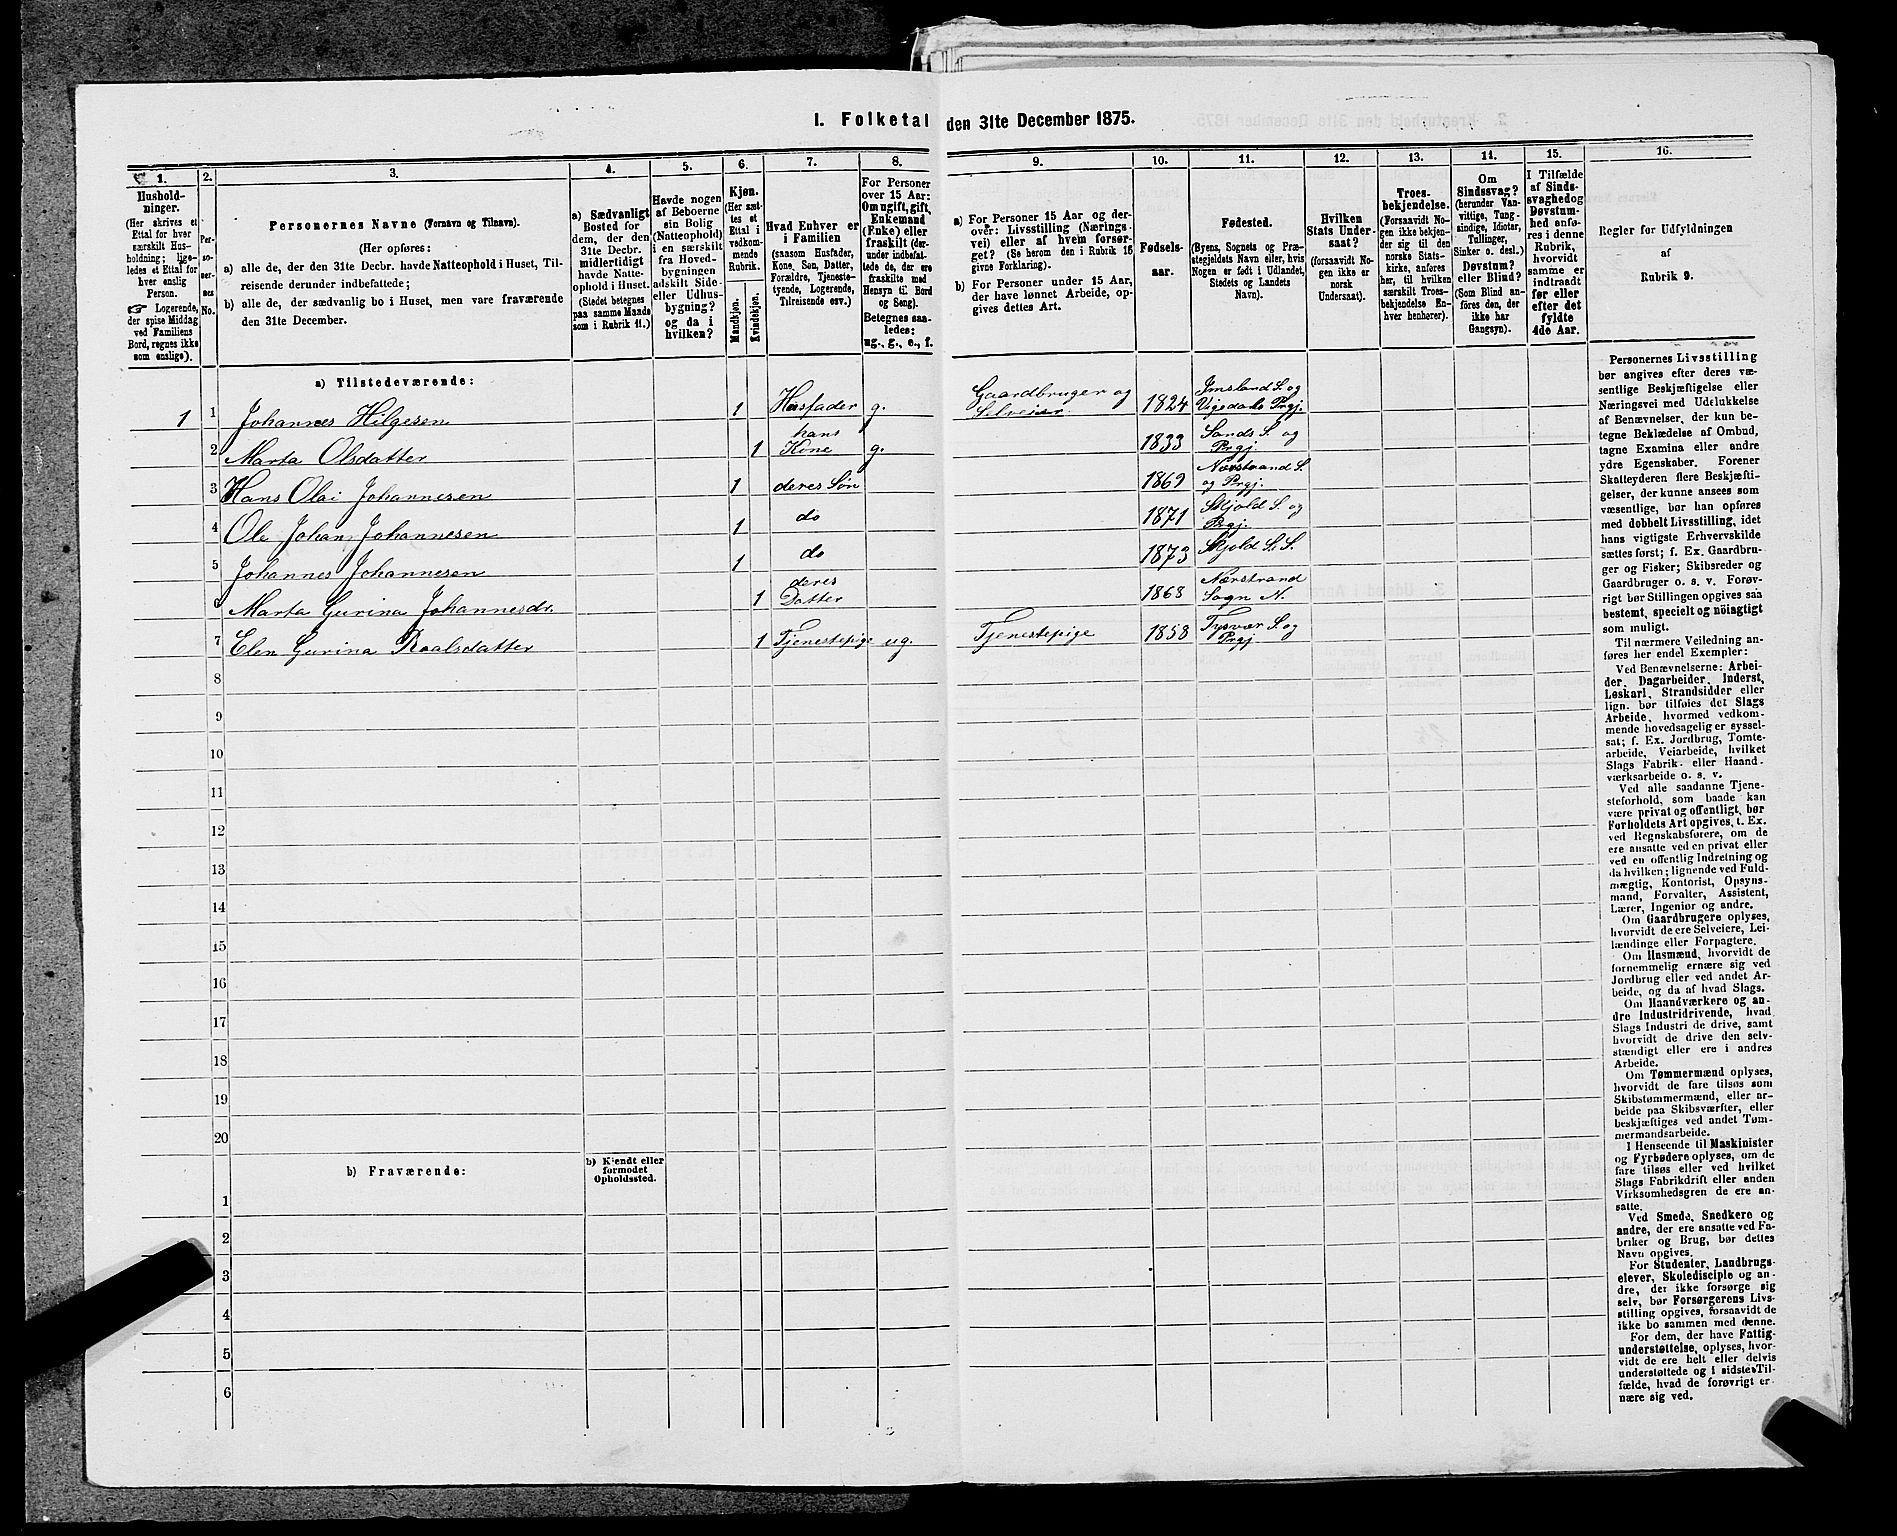 I. Folketal den 31te December 1875.
1. 2. 3. 4. 5. 6. 7. 8. 9. 10. 11. 12. 13. 14. 15. 16.
Hushold-
ninger.
(Her skrives et
Ettal for hver
særskilt Hus-
holdning; lige-
ledes et Ettal for
hver enslig
Person.
☞ Logerende,
der spise Middag
ved Familiens
Bord, regnes ikke
som enslige).
Per-
soner-
nes
No.
Personernes Navne (Fornavn og Tilnavn).
(Her opføres:
a) alle de, der den 31te Decbr. havde Natteophold i Huset, Til-
reisende derunder indbefattede;
b) alle de, der sædvanlig bo i Huset, men vare fraværende
den 31te December.
a) Sædvanligt
Bosted for
dem, der den
31te Decbr.
midlertidigt
havde Natte-
ophold i Huset.
(Stedet betegnes
paa samme Maade
som i Rubrik 11.)
Havde nogen
af Beboerne
sin Bolig
(Natteophold)
i en særskilt
fra Hoved-
bygningen
adskilt Side-
eller Udhus-
bygning?
og da i
hvilken?
Kjøn.
(Her sæt-
tes et
Ettal i
vedkom-
mende
Rubrik.
Mandkjøn.
Kvindekjøn.
Hvad Enhver er
i Familien
(saasom Husfader,
Kone, Søn, Datter,
Forældre, Tjeneste-
tyende, Logerende,
Tilreisende osv.)
For Personer
over 15 Aar:
Om ugift, gift,
Enkemand
(Enke) eller
fraskilt (der-
under indbefat-
tede de, der ere
fraskilte med
Hensyn til Bord
og Seng).
Betegnes saa-
ledes:
ug., g., e., f.
a) For Personer 15 Aar og der-
over: Livsstilling (Nærings-
vei) eller af hvem forsør-
get? (Se herom den i Rubrik 16
givne Forklaring).
b) For Personer under 15 Aar,
der have lønnet Arbeide, op-
gives dettes Art.
Fødsels-
aar.
Fødested.
(Byens, Sognets og Præ-
stegjeldets Navn eller, hvis
Nogen er født i Udlandet,
Stedets og Landets
Navn).
Hvilken
Stats Under-
saat?
(forsaavidt No-
gen ikke er
norsk
Undersaat).
Troes-
bekjendelse.
(Forsaavidt No-
gen ikke bekjen-
der sig til den
norske Stats-
kirke, anføres
her, til hvilken
særskilt Troes-
bekjendelse En-
hver henhører).
Om
Sindssvag?
(herunder Van-
vittige, Tung-
sindige, Idioter,
Tullinger,
Sinker o. desl.).
Døvstum?
eller Blind?
(Som Blind an-
føres den, der
ikke har
Gangsyn).
I Tilfælde
af Sinds-
svaghed og
Døvstum-
hed anfø-
res i denne
Rubrik,
hvorvidt
samme er
indtraadt
før eller
efter det
fyldte
4de Aar.
Regler for Udfyldningen
af
Rubrik 9.
a) Tilstedeværende:
1 1 Johannes Hilgesen 1 Husfader g. Gaardbruger og Selveier 1824 Imsland S. og Vigedals Prgj.
2 Marta Olsdatter 1 hans Kone g. 1833 Sands S. og Prgj.
3 Hans Olai Johannesen 1 deres Søn 1869 Nærstrand S. og Prgj.
4 Ole Johan Johannesen 1 do 1871 Skjold S. og Prgj.
5 Johannes Johannesen 1 do 1873 Skjold S. S.
6 Marta Gurina Johannesdr. 1 deres Datter 1868 Nærstrand Sogn N.
7 Elen Gurina Roalsdatter 1 Tjenestepige ug. Tjenestepige 1858 Tysvær S. og Prgj
8
9
10
11
12
13
14
15
16
17
18
19
20
b) Fraværende:
b) Kjendt eller
formodet
Opholdssted.
1
2
3
4
5
6
Personernes Livsstilling
bør angives efter deres væ-
sentlige Beskjæftigelse eller
Næringsvei med Udelukkelse
af Benævnelser, der kun be-
tegne Beklædelse af Ombud,
tagne Examina eller andre
ydre Egenskaber. Forener
Skatteyderen flere Beskjæfti-
gelser, der kunne ansees som
væsentlige, bør han opføres
med dobbelt Livsstilling, idet
hans vigtigste Erhvervskilde
sættes først; f. Ex. Gaardbru-
ger og Fisker; Skibsreder og
Gaardbruger o. s. v. Forøv-
rigt bør Stillingen opgives saa
bestemt, specielt og nöiagtigt
som muligt.
Til nærmere Veiledning an-
føres her endel Exempler:
Ved Benævnelserne: Arbei-
der, Dagarbeider, Inderst,
Løskarl, Strandsidder eller
lign. bør tilføies det Slags
Arbeide, hvormed vedkom-
mende hovedsagelig er syssel-
sat; f. Ex. Jordbrug, Tomte-
arbeide, Veiarbeide, hvilket
Slags Fabrik- eller Haand-
værksarbeide o. s. v.
Ved alle saadanne Tjene-
steforhold, som baade kan
være privat og offentligt, bør
Forholdets Art opgives, t. Ex.
ved Regnskabsførere, om de
ere ansatte ved en privat eller
ved en offentlig Indretning og
da hvilken; lignende ved Fuld-
mægtig, Kontorist, Opsyns-
mand, Forvalter, Assistent,
Lærer, Ingeniør og andre.
Om Gaardbrugere oplyses,
hvorvidt de ere Selveiere, Lei-
lændinge eller Forpagtere.
Om Husmænd, hvorvidt de
fornemmelig ernære sig ved
Jordbrug eller ved andet Ar-
beide, og da af hvad Slags.
Om Haandværkere og an-
dre Industridrivende, hvad
Slags Industri de drive, samt
hvorvidt de drive den selv-
stændigt eller ere i andres
Arbeide.
Om Tømmermænd oplyses,
hvorvidt de fare tilsøs som
Skibstømmermænd, eller ar-
beide paa Skibsværfter, eller
beskjæftiges ved andet Tøm-
mermandsarbeide.
I Henseende til Maskinister
og Fyrbødere oplyses, om de
fare tilsøs eller ved hvilket
Slags Fabrikdrift eller anden
Virksomhedsgren de ere an-
satte.
Ved Smede, Snedkere og
andre, der ere ansatte ved Fa-
briker og Brug, bør dettes
Navn opgives.
For Studenter, Landbrugs-
elever, Skoledisciple og an-
dre, der ikke forsørge sig
selv, bør Forsørgerens Livs-
stilling opgives, forsaavidt de
ikke bo sammen med denne.
For dem, der have Fattig-
understøttelse, oplyses, hvor-
vidt de ere helt eller delvis
understøttede og i sidste Til-
fælde, hvad de forøvrigt er-
nære sig ved.